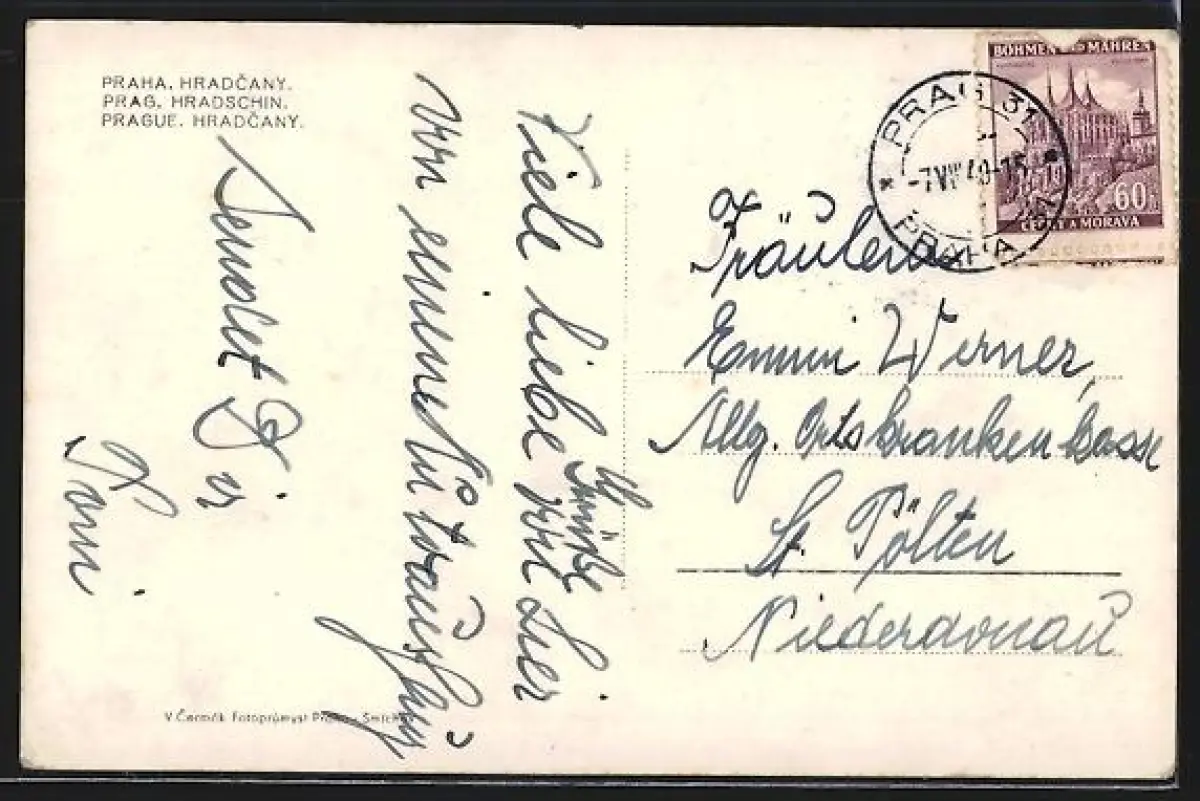 PRAHA, HRADČANY.
PRAG, HRADSCHIN.
PRAGUE, HRADČANY.
Viele liebe
Grüße
von
sendet Dir
Toni
V. Čermák Fotoprůmysl Praha - Smíchov
BÖHMEN UND MÄHREN
60
ČECHY A MORAVA
PRAG 31
-7 VII 40-15
PRAHA 31
Fräulein
Emmi Werner,
Allg. Ortskrankenkasse
St. Pölten
Niederdonau